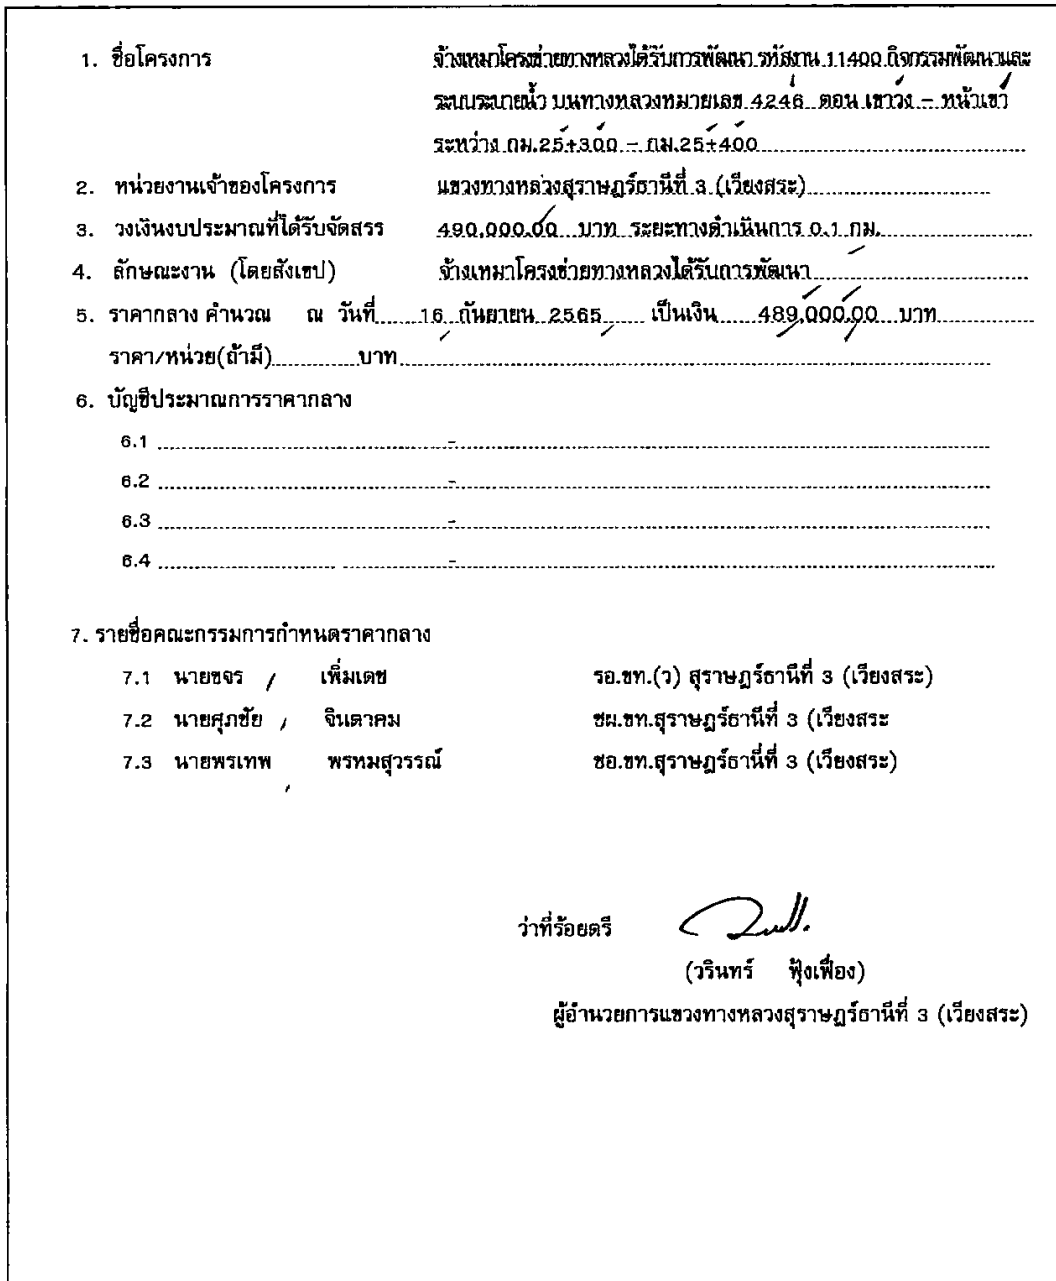 1. ชื่อโครงการ จ้างเหมาโครงข่ายทางหลวงได้รับการพัฒนา รหัสงาน 11400 กิจกรรมพัฒนาและ
ระบบระบายน้ำ บนทางหลวงหมายเลข 4246 ตอน เขาวง - หน้าเขา
ระหว่าง กม.25+300 - กม.25+400
2. หน่วยงานเจ้าของโครงการ แขวงทางหลวงสุราษฎร์ธานีที่ 3 (เวียงสระ)
3. วงเงินงบประมาณที่ได้รับจัดสรร 490,000.00 บาท ระยะทางดำเนินการ 0.1 กม.
4. ลักษณะงาน (โดยสังเขป) จ้างเหมาโครงข่ายทางหลวงได้รับการพัฒนา
5. ราคากลาง คำนวณ ณ วันที่ 16 กันยายน 2565 เป็นเงิน 489,000.00 บาท
ราคา/หน่วย(ถ้ามี) บาท
6. บัญชีประมาณการราคากลาง
6.1 -
6.2 -
6.3 -
6.4 -
7. รายชื่อคณะกรรมการกำหนดราคากลาง
7.1 นายขจร เพิ่มเดช รอ.ขท.(ว) สุราษฎร์ธานีที่ 3 (เวียงสระ)
7.2 นายศุภชัย จินตาคม ชผ.ขท.สุราษฎร์ธานีที่ 3 (เวียงสระ
7.3 นายพรเทพ พรหมสุวรรณ์ ชอ.ขท.สุราษฎร์ธานี่ที่ 3 (เวียงสระ)
ว่าที่ร้อยตรี
(วรินทร์ ฟุ้งเฟื่อง)
ผู้อำนวยการแขวงทางหลวงสุราษฎร์ธานีที่ 3 (เวียงสระ)